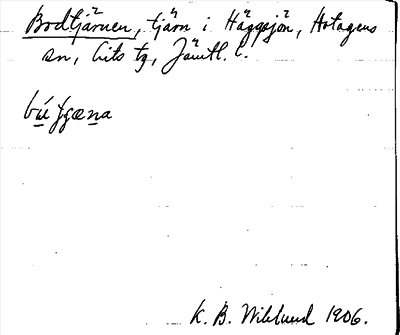 Bodtjärnen, tjärn i Häggsjön, Hotagens
sn, Lits tg, Jämtl. l.
K. B. Wiklund 1906.